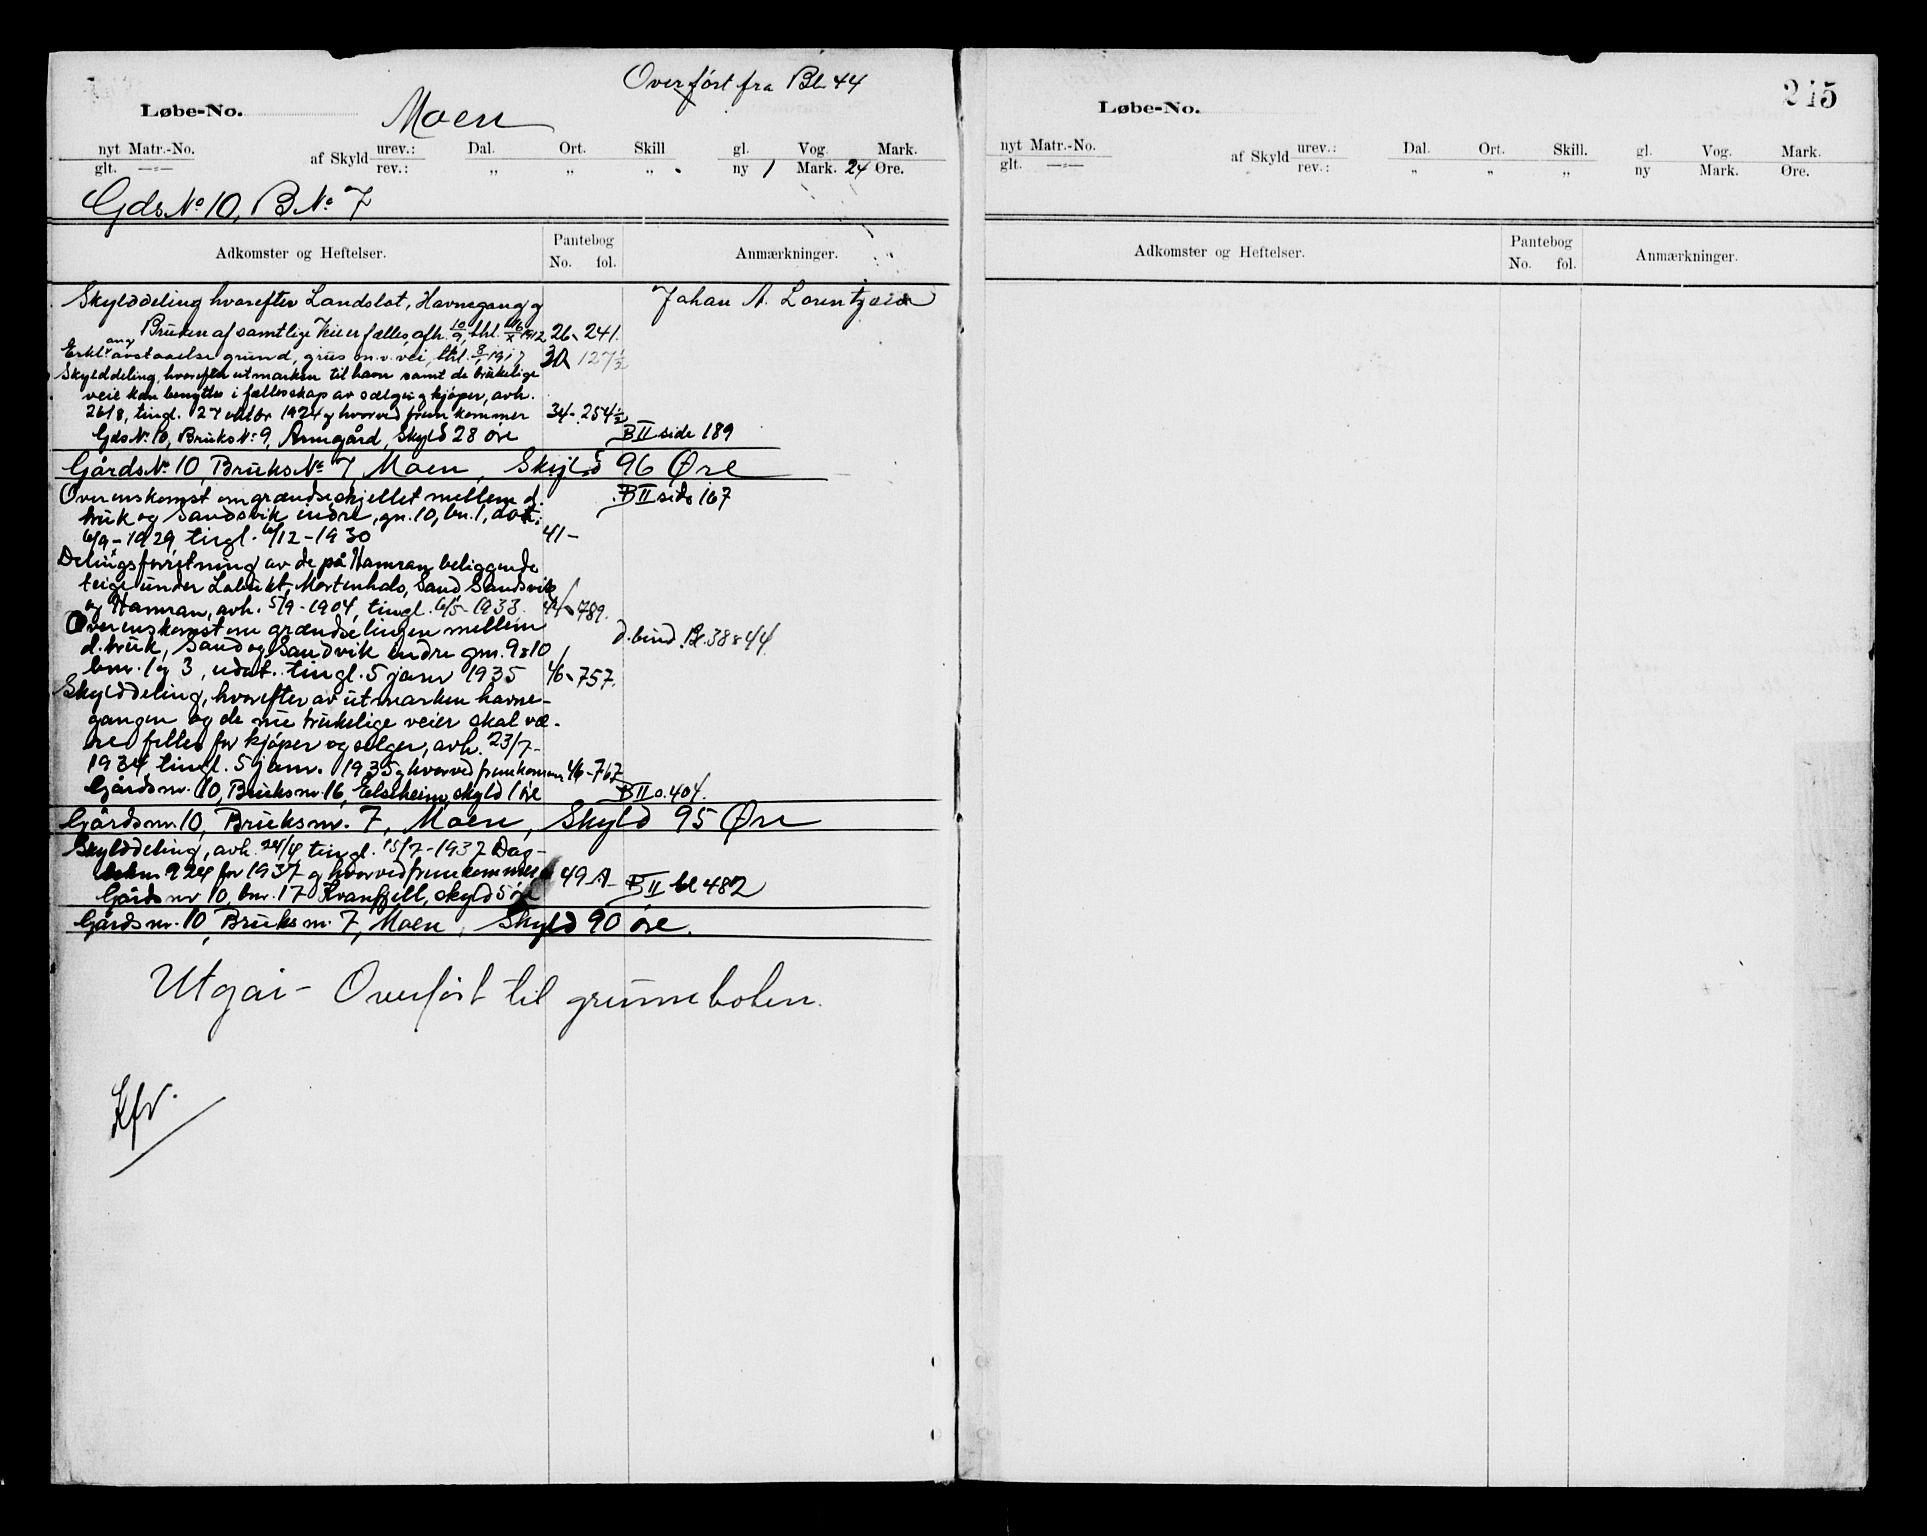 Overført fra Bl. 44
Løbe-No. Moen
nyt Matr.-No. af Skyld urev.: Dal. Ort. Skill gl. Vog. Mark.
glt. —"— rev.: „ „ „ ny 1 Mark. 24 Øre.
Gds.No 10, B.No 7
Adkomster og Heftelser. Pantebog No. fol. Anmærkninger.
Skylddeling hvorefter Landslot, Havnegang og Johan A. Lorentzen
Bruken af samtlige Veier fælles, afh. 10/9, thl. 1912 26 - 241.
Erkl. ang. avstaaelse grund, grus m.v. vei, thl. 1917 30 127½
Skylddeling, hvorefter utmarken til havn samt de brukelige
veie kan benyttes i fællesskap av sælger og kjøper, avh.
26/8, tingl. 27 oktbr 1924 og hvorved fremkommer 34 - 254½
Gds No 10, Bruks No 9, Annegård, Skyld 28 øre B II side 189
Gårds No 10, Bruks No 7, Moen, Skyld 96 Øre
Overenskomst om grændseskjellet mellem d. B II side 167
bruk og Sandsvik indre, gn. 10, bn. 1, dat.
6/9 - 1929, tingl. 6/12 - 1930 41 -
Delingsforretning av de på Hamran beliggende
teige under Labukt, Mortenhals, Sand Sandsvik
og Hamran, avh. 5/9 - 1904, tingl. 6/5 - 1933. 44 - 789.
Overenskomst om grændselinjen mellem d. bind. Bl. 38 & 44
d. bruk, Sand og Sandvik indre gnr. 9 & 10
bnr. 1 og 3, udat. tingl. 5 janr 1935 46 - 757.
Skylddeling, hvorefter av utmarken havne-
gangen og de nu brukelige veier skal væ-
re felles for kjøper og selger, avh. 23/7 -
1934 tingl. 5 janr. 1935 og hvorved fremkommer 46 - 767
Gårdsnr. 10, Bruksnr. 16, Elseheim, skyld 1 øre B II s. 404.
Gårdsnr. 10, Bruksnr. 7, Moen, Skyld 95 Øre
Skylddeling, avh. 24/4 tingl. 15/7 - 1937 Dag-
boknr. 924 for 1937 og hvorved fremkommer 49 A - B II bl 482
Gårdsnr 10, bnr. 17 Kvanfjell, skyld 5 øre
Gårdsnr. 10, Bruksnr. 7, Moen, Skyld 90 øre.
Utgår - Overført til grunnboken.
Kfr.
215
Løbe-No.
nyt Matr.-No. af Skyld urev.: Dal. Ort. Skill. gl. Vog. Mark.
glt. —"— rev.: „ „ „ ny Mark. Øre.
Adkomster og Heftelser. Pantebog No. fol. Anmærkninger.